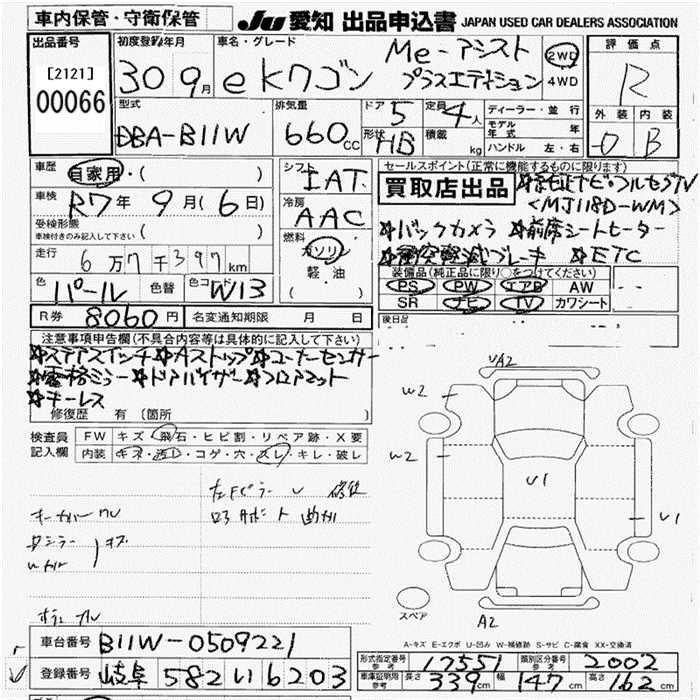 車内保管・守衛保管
JU 愛知 出品申込書 JAPAN USED CAR DEALERS ASSOCIATION
出品番号
[2121]
00066
初度登録年月
30 9月
車名・グレード
eKワゴン
Me-アシスト
プラスエディション
2WD
4WD
評価点
R
型式
DBA-B11W
排気量
660cc
ドア
5
形状
HB
定員
4人
積載
kg
ディーラー・並行
モデル年式 年
ハンドル 左・右
外装
内装
B
車歴
自家用・( )
車検
R7年 9月(6日)
受検形態
車検付きのみ記入して下さい ( )
走行
6万7千397km
色
パール
色替
色コード
W13
シフト
IAT
冷房
AAC
燃料
ガソリン
軽・油
( )
セールスポイント(正常に機能するものに限ります)
買取店出品
☆純正ナビ・フルセグTV
<MJ118D-WM>
☆バックカメラ ☆前席シートヒーター
☆衝突軽減ブレーキ ☆ETC
装備品(純正品に限り○をつけてください)
PS PW エアB AW
SR ナビ TV カワシート
後日品
R券
8060円
名変通知期限 月 日
注意事項申告欄(不具合内容等は具体的に記入して下さい)
☆ステアスイッチ ☆Aストップ ☆コーナーセンサー
☆電格ミラー ☆ドアバイザー ☆フロアマット
☆キーレス
修復歴 有 〔箇所 〕
検査員記入欄
FW キズ・飛石・ヒビ割・リペア跡・X要
内装 キズ・汚レ・コゲ・穴・スレ・キレ・破レ
左Fピラー
UA2
W2
W2
U1
U1
A2
スペア
A-キズ E-エクボ U-凹み W-補修跡 S-サビ C-腐食 XX-交換済
車台番号
B11W-0509221
登録番号
岐阜 582 い 6203
形式指定番号
参考
17551
類別区分番号
参考
2002
車庫証明用
参考
長さ 339cm 幅 147cm 高さ 162cm